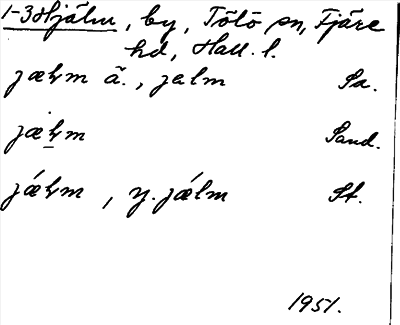 1-3 Hjälm, by, Tölö sn, Fjäre
hd, Hall. l.
jæɫm ä., jalm Sa.
jæɫm Sand.
jǽɫm, y. jælm St.
1951.